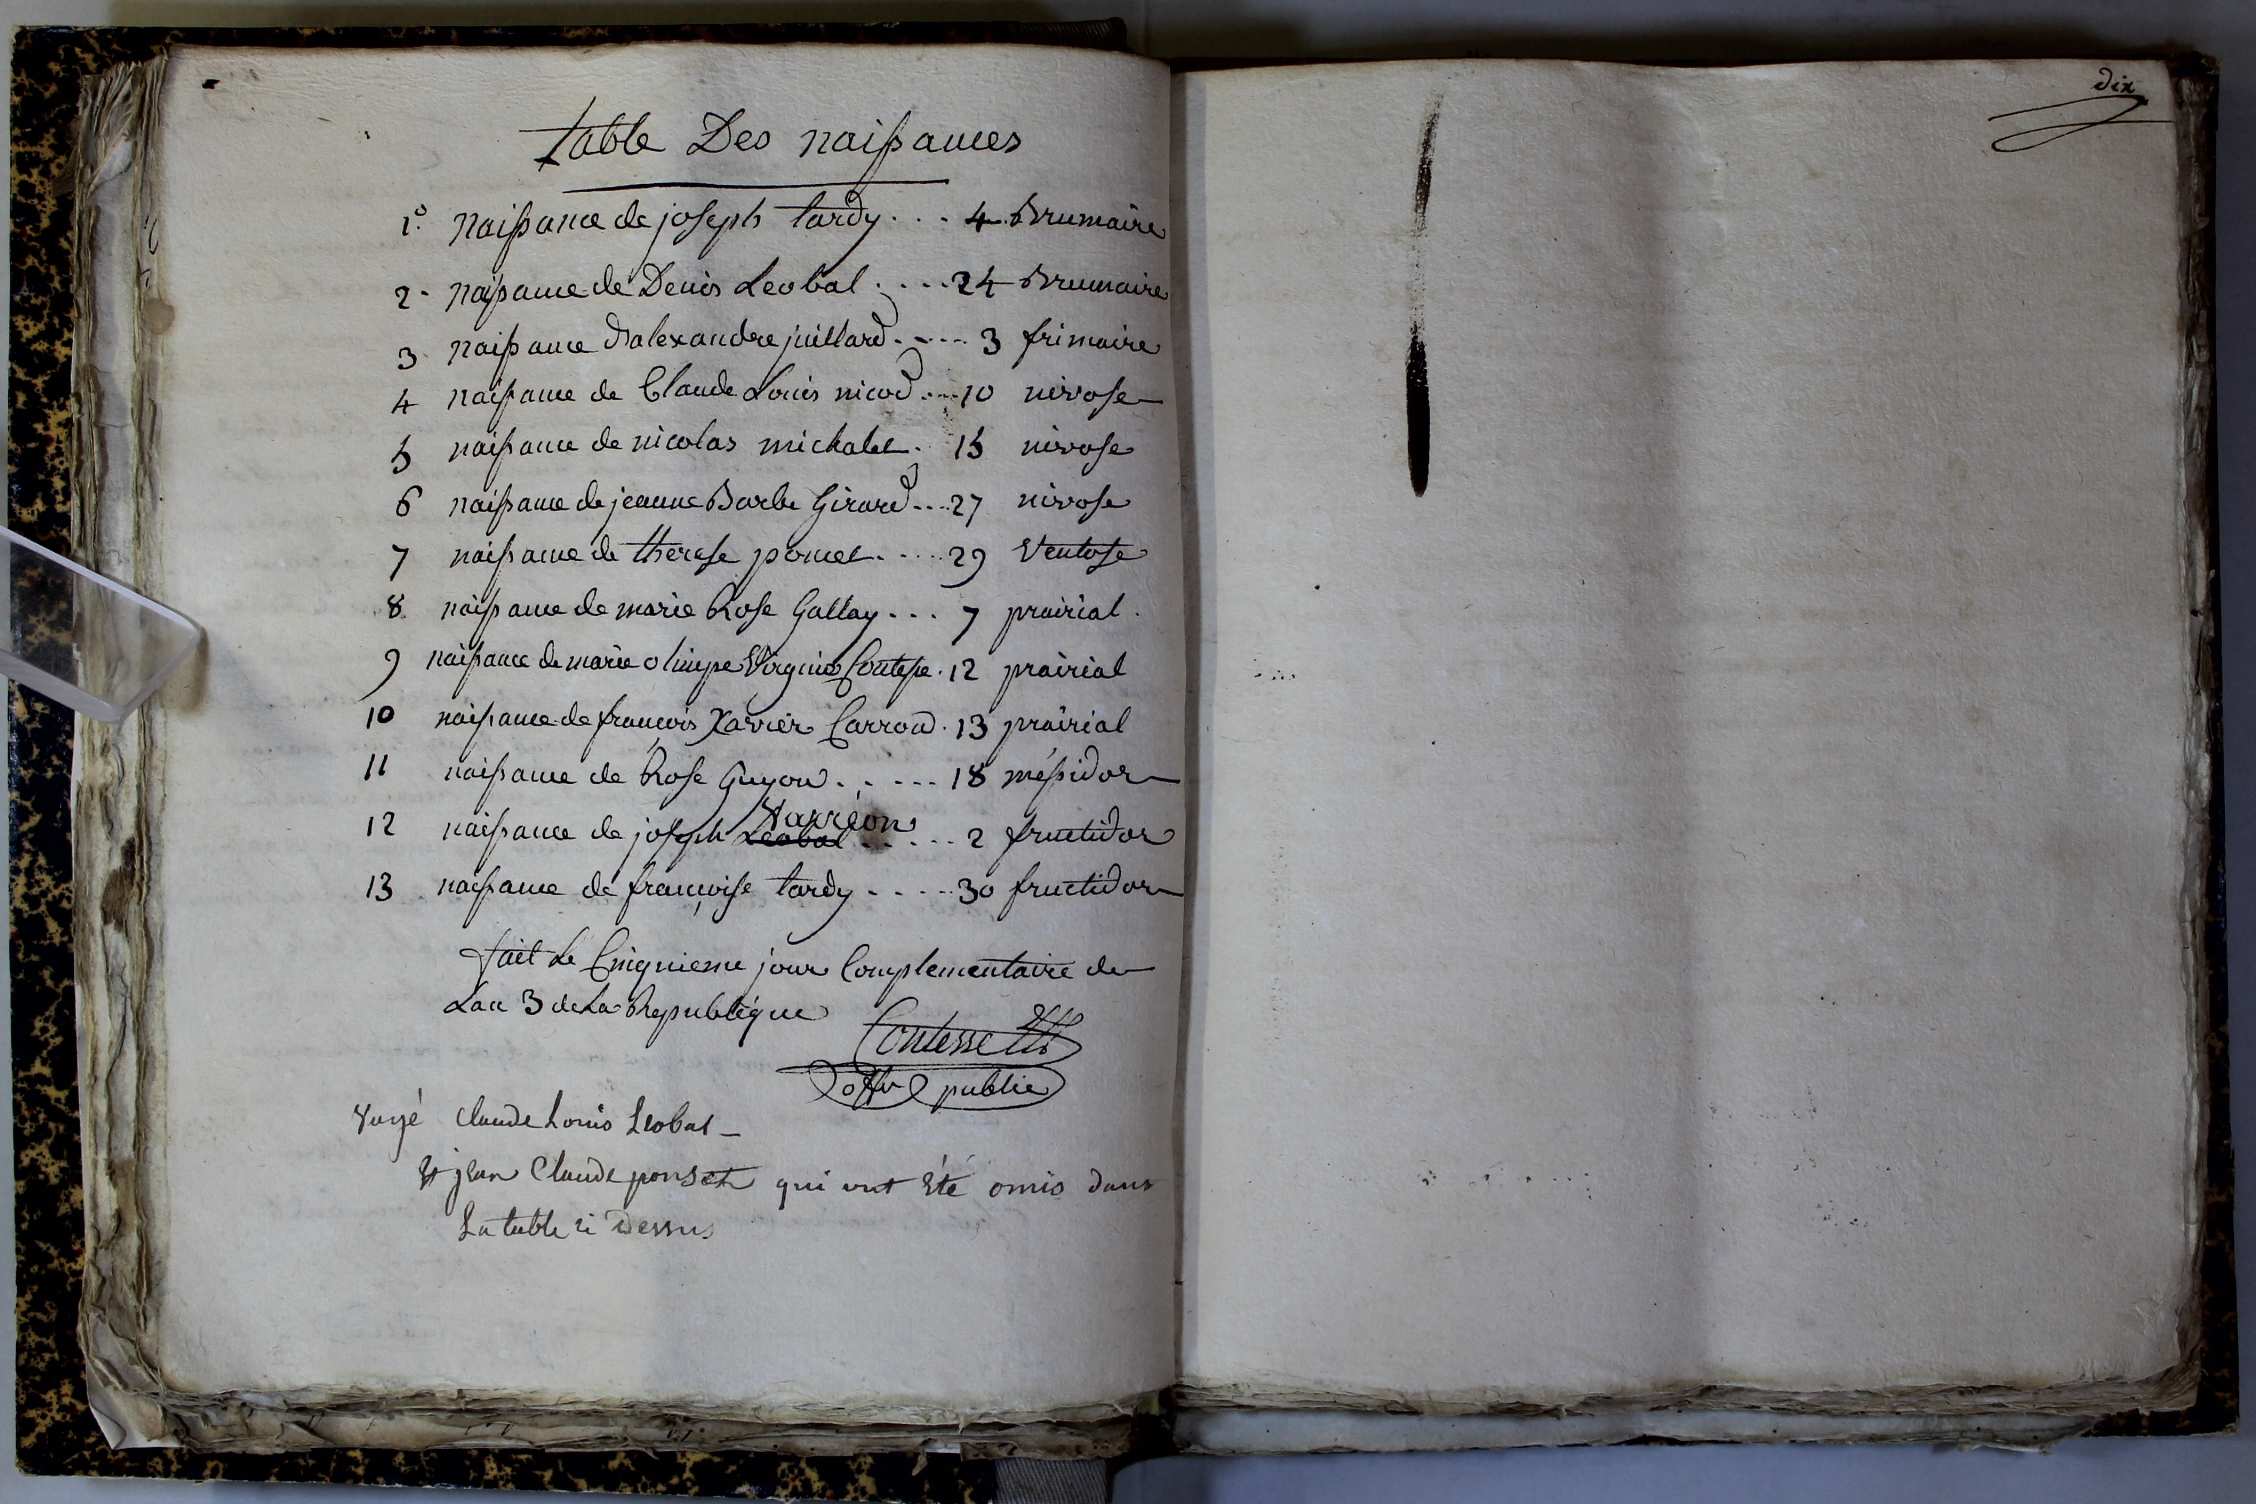 table Des naissances
1° naissance de joseph tardy . . . 4 Brumaire
2 - naissance de Denis Leobal . . . . 24 Brumaire
3 naissance d'alexandre juillard . . . . 3 frimaire
4 naissance de Claude Louis nicod . . . 10 nivose
5 naissance de nicolas michalet . 15 nivose
6 naissance de jeanne Barbe Girard . . . 27 nivose
7 naissance de therese poncet . . . . 29 Ventose
8 naissance de marie Rose Gallay . . . 7 prairial .
9 naissance de marie olimpe Virginie Contesse . 12 prairial
10 naissance de françois Xavier Carrond . 13 prairial
11 naissance de Rose Guyon . . . . . 18 messidor
12 naissance de joseph Leobal Varréon . . . . 2 fructidor
13 naissance de françoise tardy . . . . . 30 fructidor
fait Le Cinquieme jour Complementaire de
Lan 3 de La Republique
Contesse
offr public
claude Louis Leobal -
& jean Claude ponset qui ont été omis dans
La table ci Dessus
dix